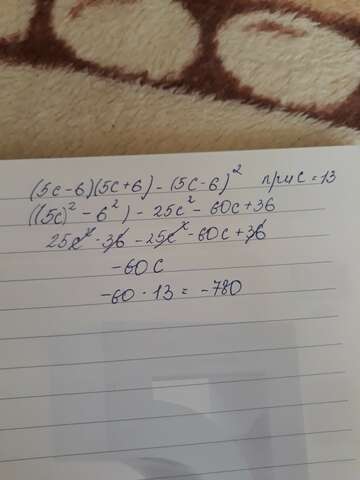 (5c-6)(5c+6)-(5c-6)² при c=13
((5c)²-6²)-25c²-60c+36
25c²-36-25c²-60c+36
-60c
-60·13=-780